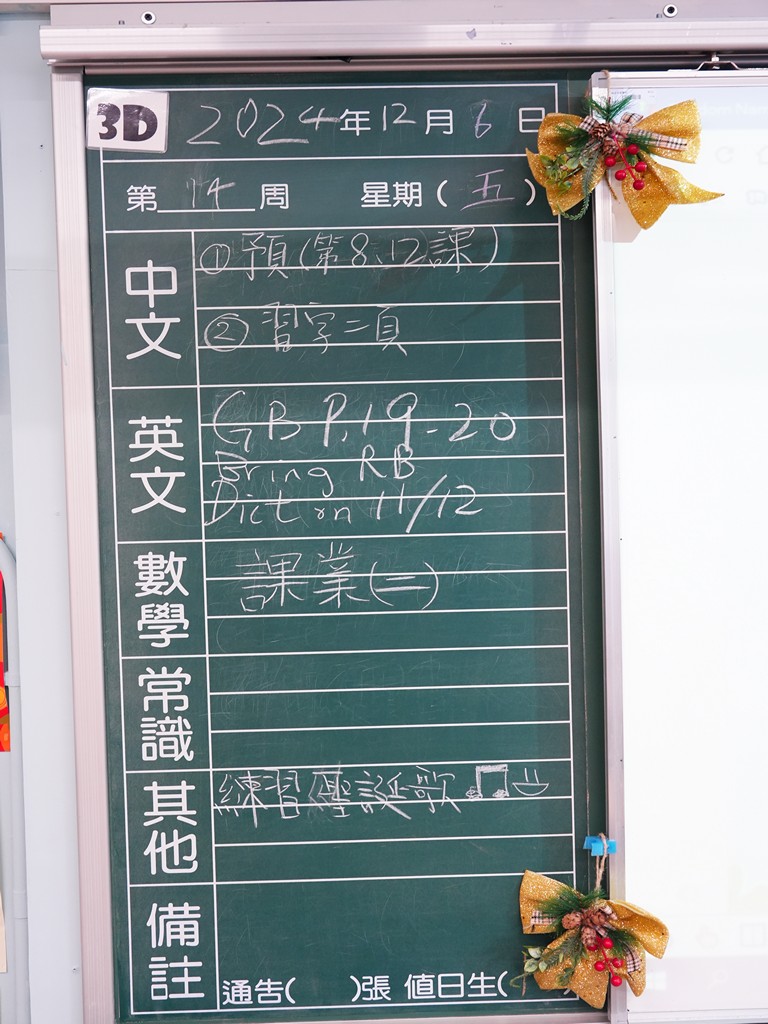 3D 2024年12月6日
第14周 星期(五)
中文
①預(第8、12課)
②習字二頁
英文
GB P.19-20
Bring RB
Dict on 11/12
數學
課業(二)
常識
其他
練習聖誕歌
備註
通告( )張 值日生(